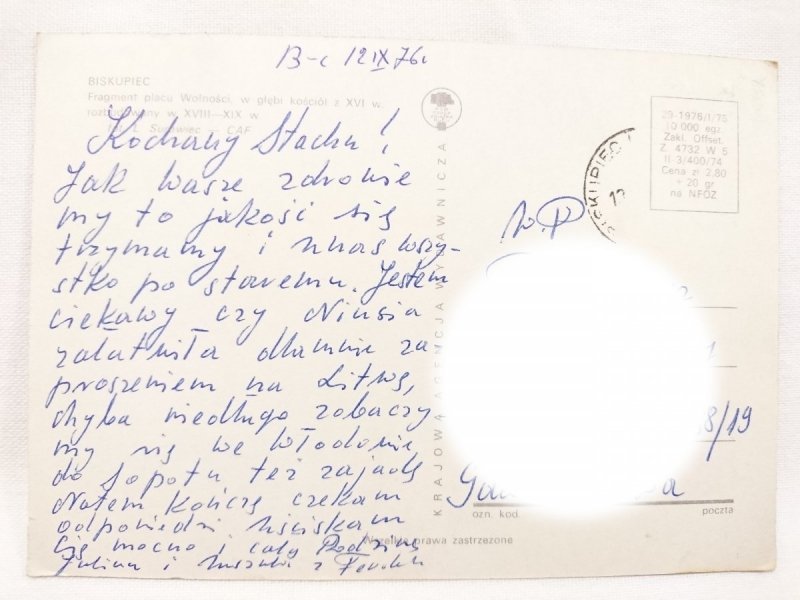 B-c 12 IX 76r
BISKUPIEC
Fragment placu Wolności, w głębi kościół z XVI w.
rozbudowany w XVIII—XIX w
fot. L. Surowiec — CAF
Kochany Stachu!
Jak wasze zdrowie
my to jakość się
trzymamy i unas wszy-
stko po staremu. Jestem
ciekawy czy Niusia
załatwiła dlamnie za
proszeniem na Litwę,
chyba niedługo zobaczy
my się we Włodowie
do Sopotu też zajadę
Natem kończę czekam
odpowiedzi uściskam
Cię mocno i całą Rodzinę
Julian i z
KRAJOWA AGENCJA WYDAWNICZA
29-1976/I/75
10 000 egz.
Zakl. Offset.
Z 4732 W 5
II-3/400/74
Cena zł 2,80
+ 20 gr
na NFOZ
BISKUPIEC
W.P
18/19
ozn. kod.
poczta
Wszelkie prawa zastrzeżone